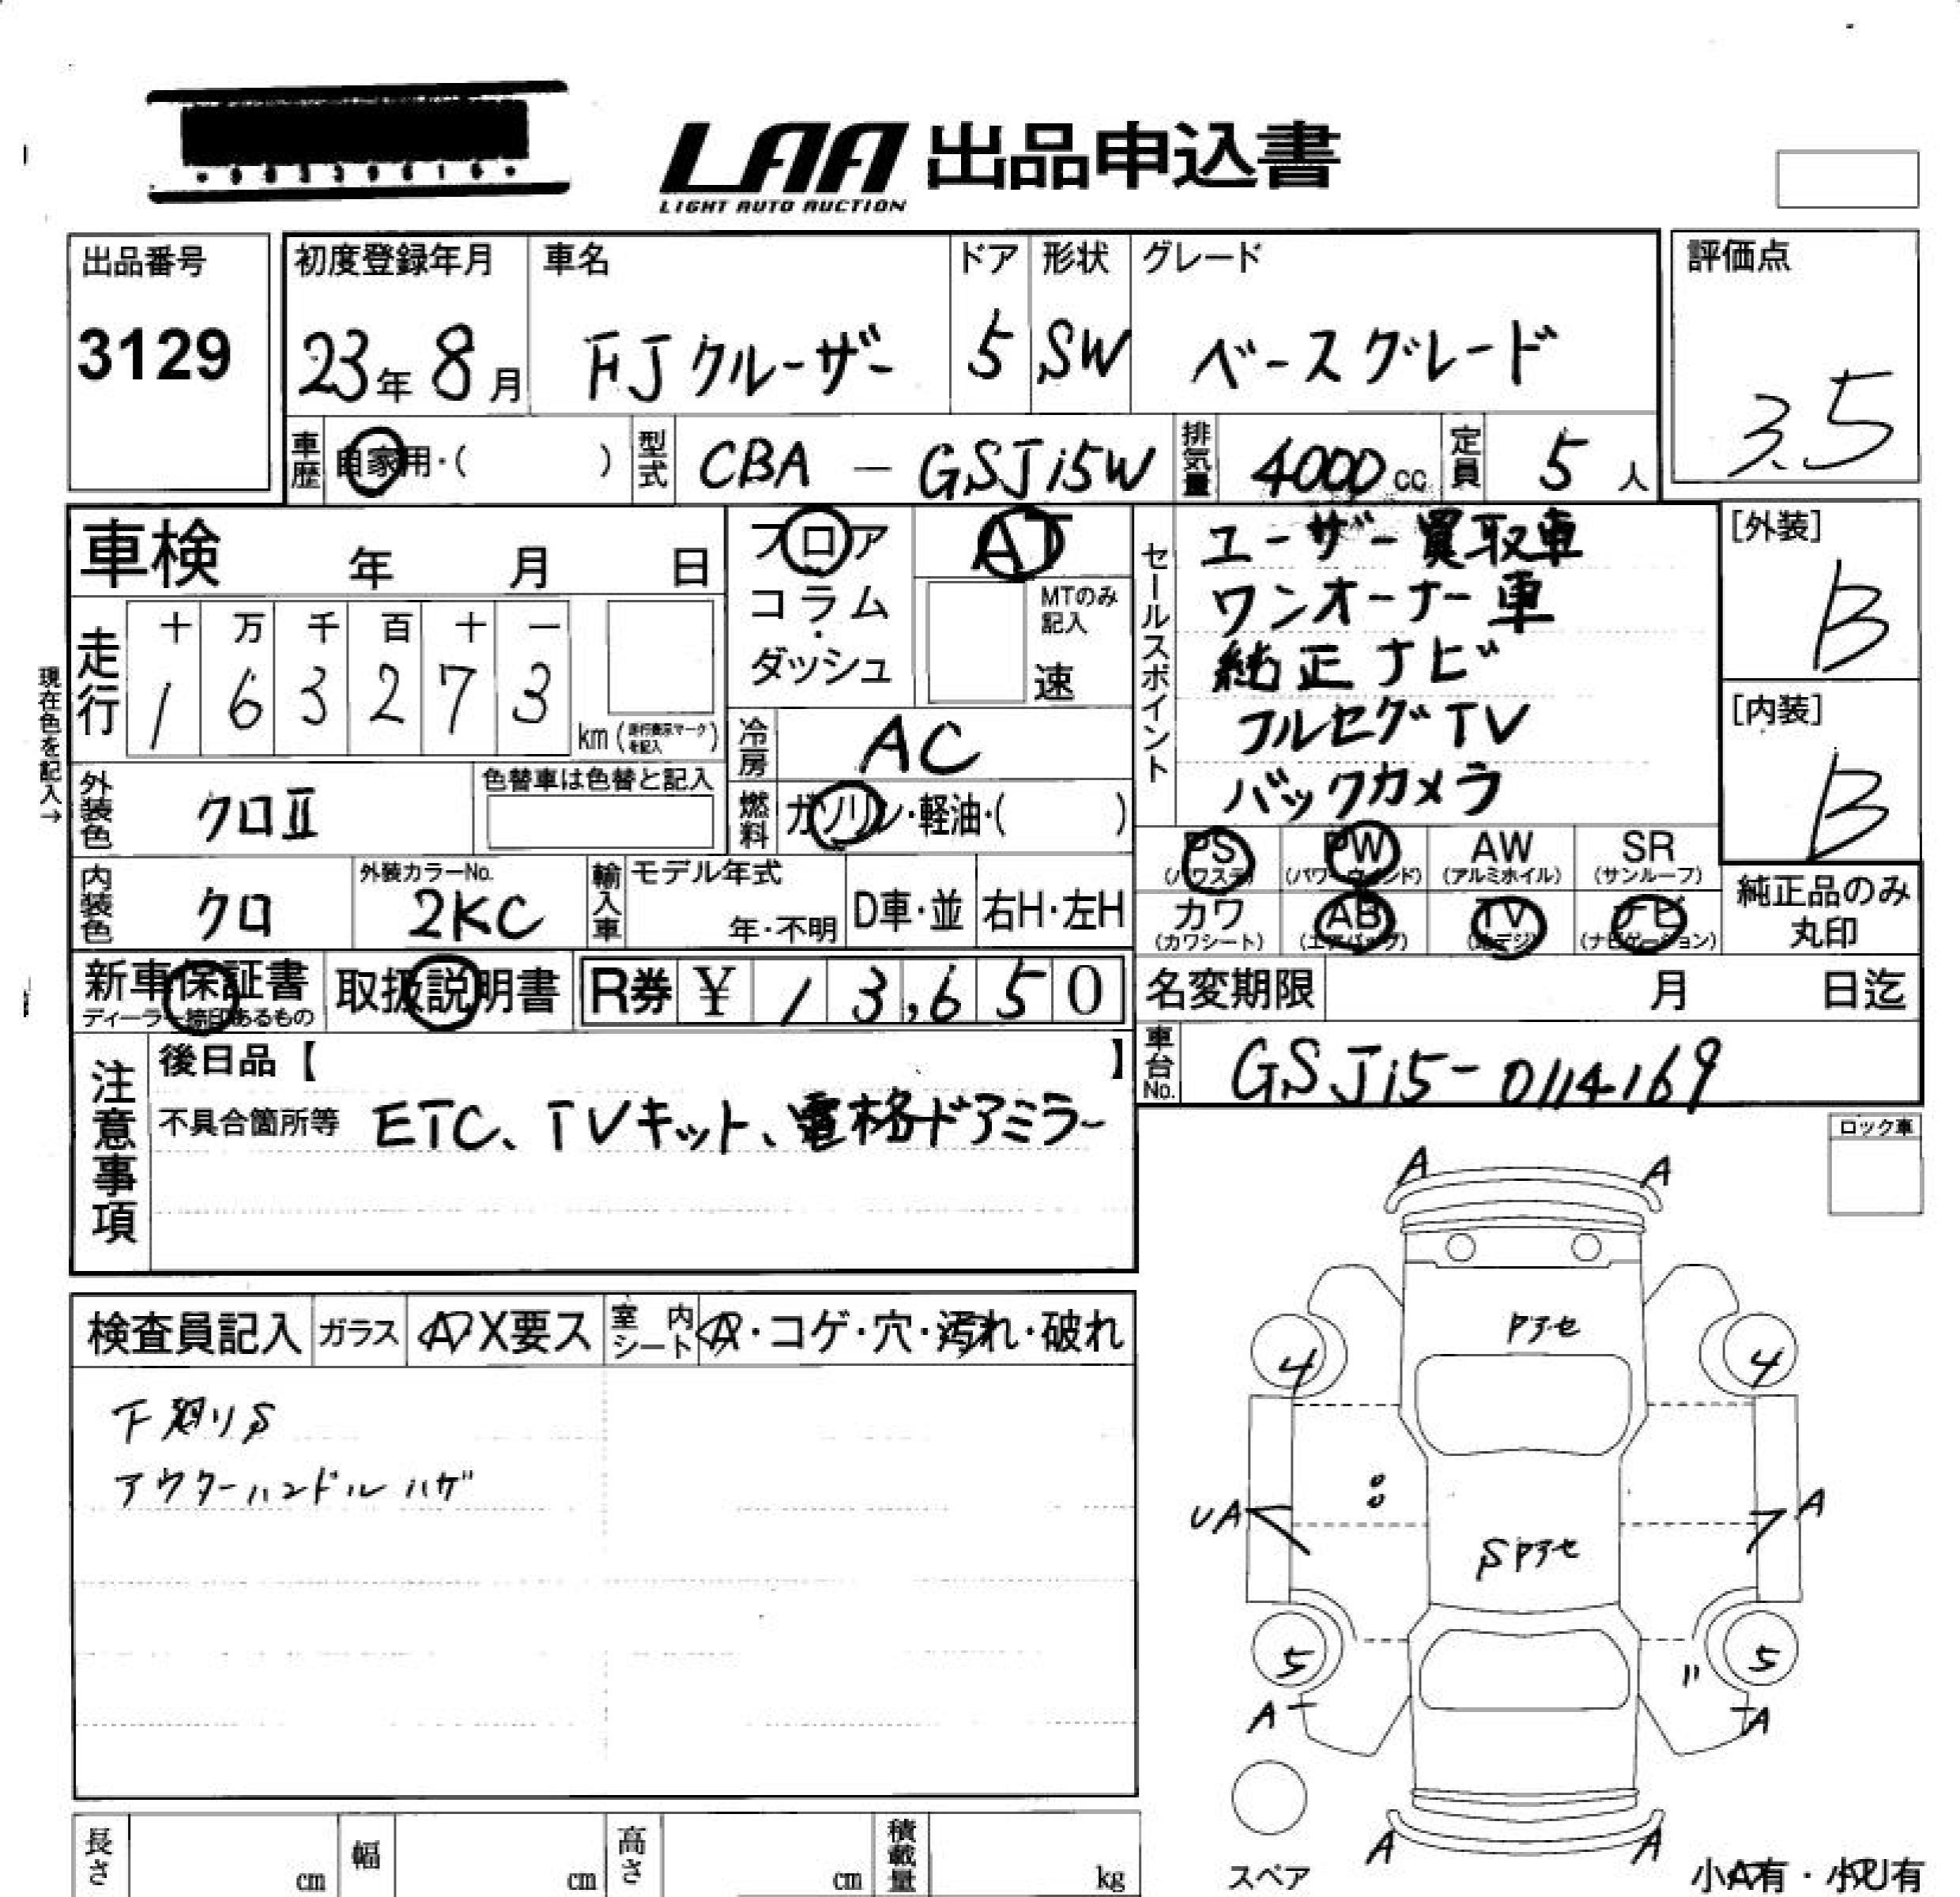 LAA 出品申込書
LIGHT AUTO AUCTION
出品番号
3129
初度登録年月
23年 8月
車名
FJクルーザー
ドア
5
形状
SW
グレード
ベースグレード
評価点
3.5
車歴 自家用・( )
型式 CBA - GSJ15W
排気量 4000cc
定員 5人
車検 年 月 日
フロア
コラム
・
ダッシュ
AT
MTのみ
記入
速
セールスポイント
ユーザー買取車
ワンオーナー車
純正ナビ
フルセグTV
バックカメラ
[外装]
B
[内装]
B
現在色を記入→
走行
十 万 千 百 十 一
1 6 3 2 7 3
km(走行表示マークを記入)
冷房 AC
外装色 クロⅡ
色替車は色替と記入
燃料 ガソリン・軽油・( )
PS (パワステ)
PW (パワーウィンド)
AW (アルミホイル)
SR (サンルーフ)
カワ (カワシート)
AB (エアバッグ)
TV (地デジ)
ナビ (ナビゲーション)
純正品のみ
丸印
内装色 クロ
外装カラーNo.
2KC
輸入車
モデル年式
年・不明
D車・並
右H・左H
新車保証書
ディーラー締印あるもの
取扱説明書
R券 ¥ 13,650
名変期限 月 日迄
車台No. GSJ15-0114169
注意事項
後日品【 】
不具合箇所等 ETC、TVキット、電格ドアミラー
ロック車
検査員記入
ガラス A X要ス
室内シート A・コゲ・穴・汚れ・破れ
下廻りS
アウターハンドルハゲ
A A
Pアセ
4 4
UA A
SPアセ
5 5
A A
A A
スペア
小A有・小U有
長さ cm
幅 cm
高さ cm
積載量 kg